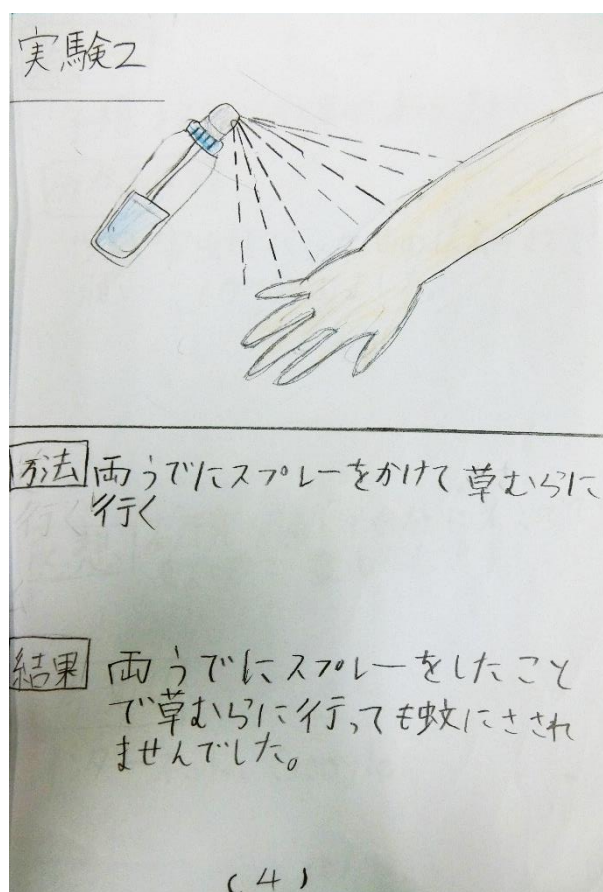 実験2
方法
両うでにスプレーをかけて草むらに
行く
結果
両うでにスプレーをしたこと
で草むらに行っても蚊にさされ
ませんでした。
(4)